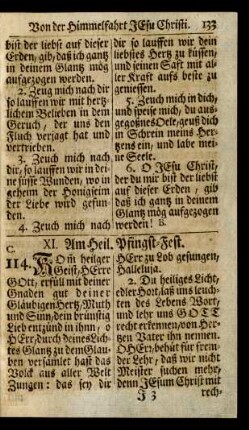 Von der Himmelfahrt JEsu Christi. 133
bist der liebst auf dieser
Erden, gib, daß ich gantz
in deinem Glantz mög
aufgezogen werden.
2. Zeug mich nach dir
so lauffen wir mit hertz-
lichem Belieben in dem
Geruch, der uns den
Fluch verjagt hat und
vertrieben.
3. Zeuch mich nach
dir, so lauffen wir in dei-
ne fünff Wunden, wo in
geheim der Honigseim
der Liebe wird gefunden.
4. Zeuch mich nach
dir so lauffen wir dein
liebstes Hertz zu küssen,
und seinen Saft mit al-
ler Kraft aufs beste zu
geniessen.
5. Zeuch mich in dich,
und speise mich, du aus-
gegoßnes Oele, geuß dich
in Schrein meins Her-
tzens ein, und labe mei-
ne Seele.
6. O JEsu Christ,
der du mir bist der liebst
auf dieser Erden, gib
daß ich gantz in deinem
Glantz mög aufgezogen
werden!
C. XI. Am Heil. Pfingst-Fest.
114. Kom heiger
Geist, HErre
GOtt, erfüll mit deiner
Gnaden gut deiner
Gläubigen Hertz, Muth
und Sinn, dein brünstig
Lieb entzünd in ihn, o
HErr, durch deines Lich-
tes Glantz zu dem Glau-
ben versamlet hast das
Volck aus aller Welt
Zungen: das sey dir
HErr zu Lob gesungen,
Halleluja.
2. Du heiliges Licht,
edler Hort, laß uns leuch-
ten des Lebens Wort,
und lehr uns GOTT
recht erkennen, von Her-
tzen Vater ihn nennen.
O HErr, behüt für frem-
der Lehr, daß wir nicht
Meister suchen mehr,
denn JEsum Christ mit
J 3 rech-